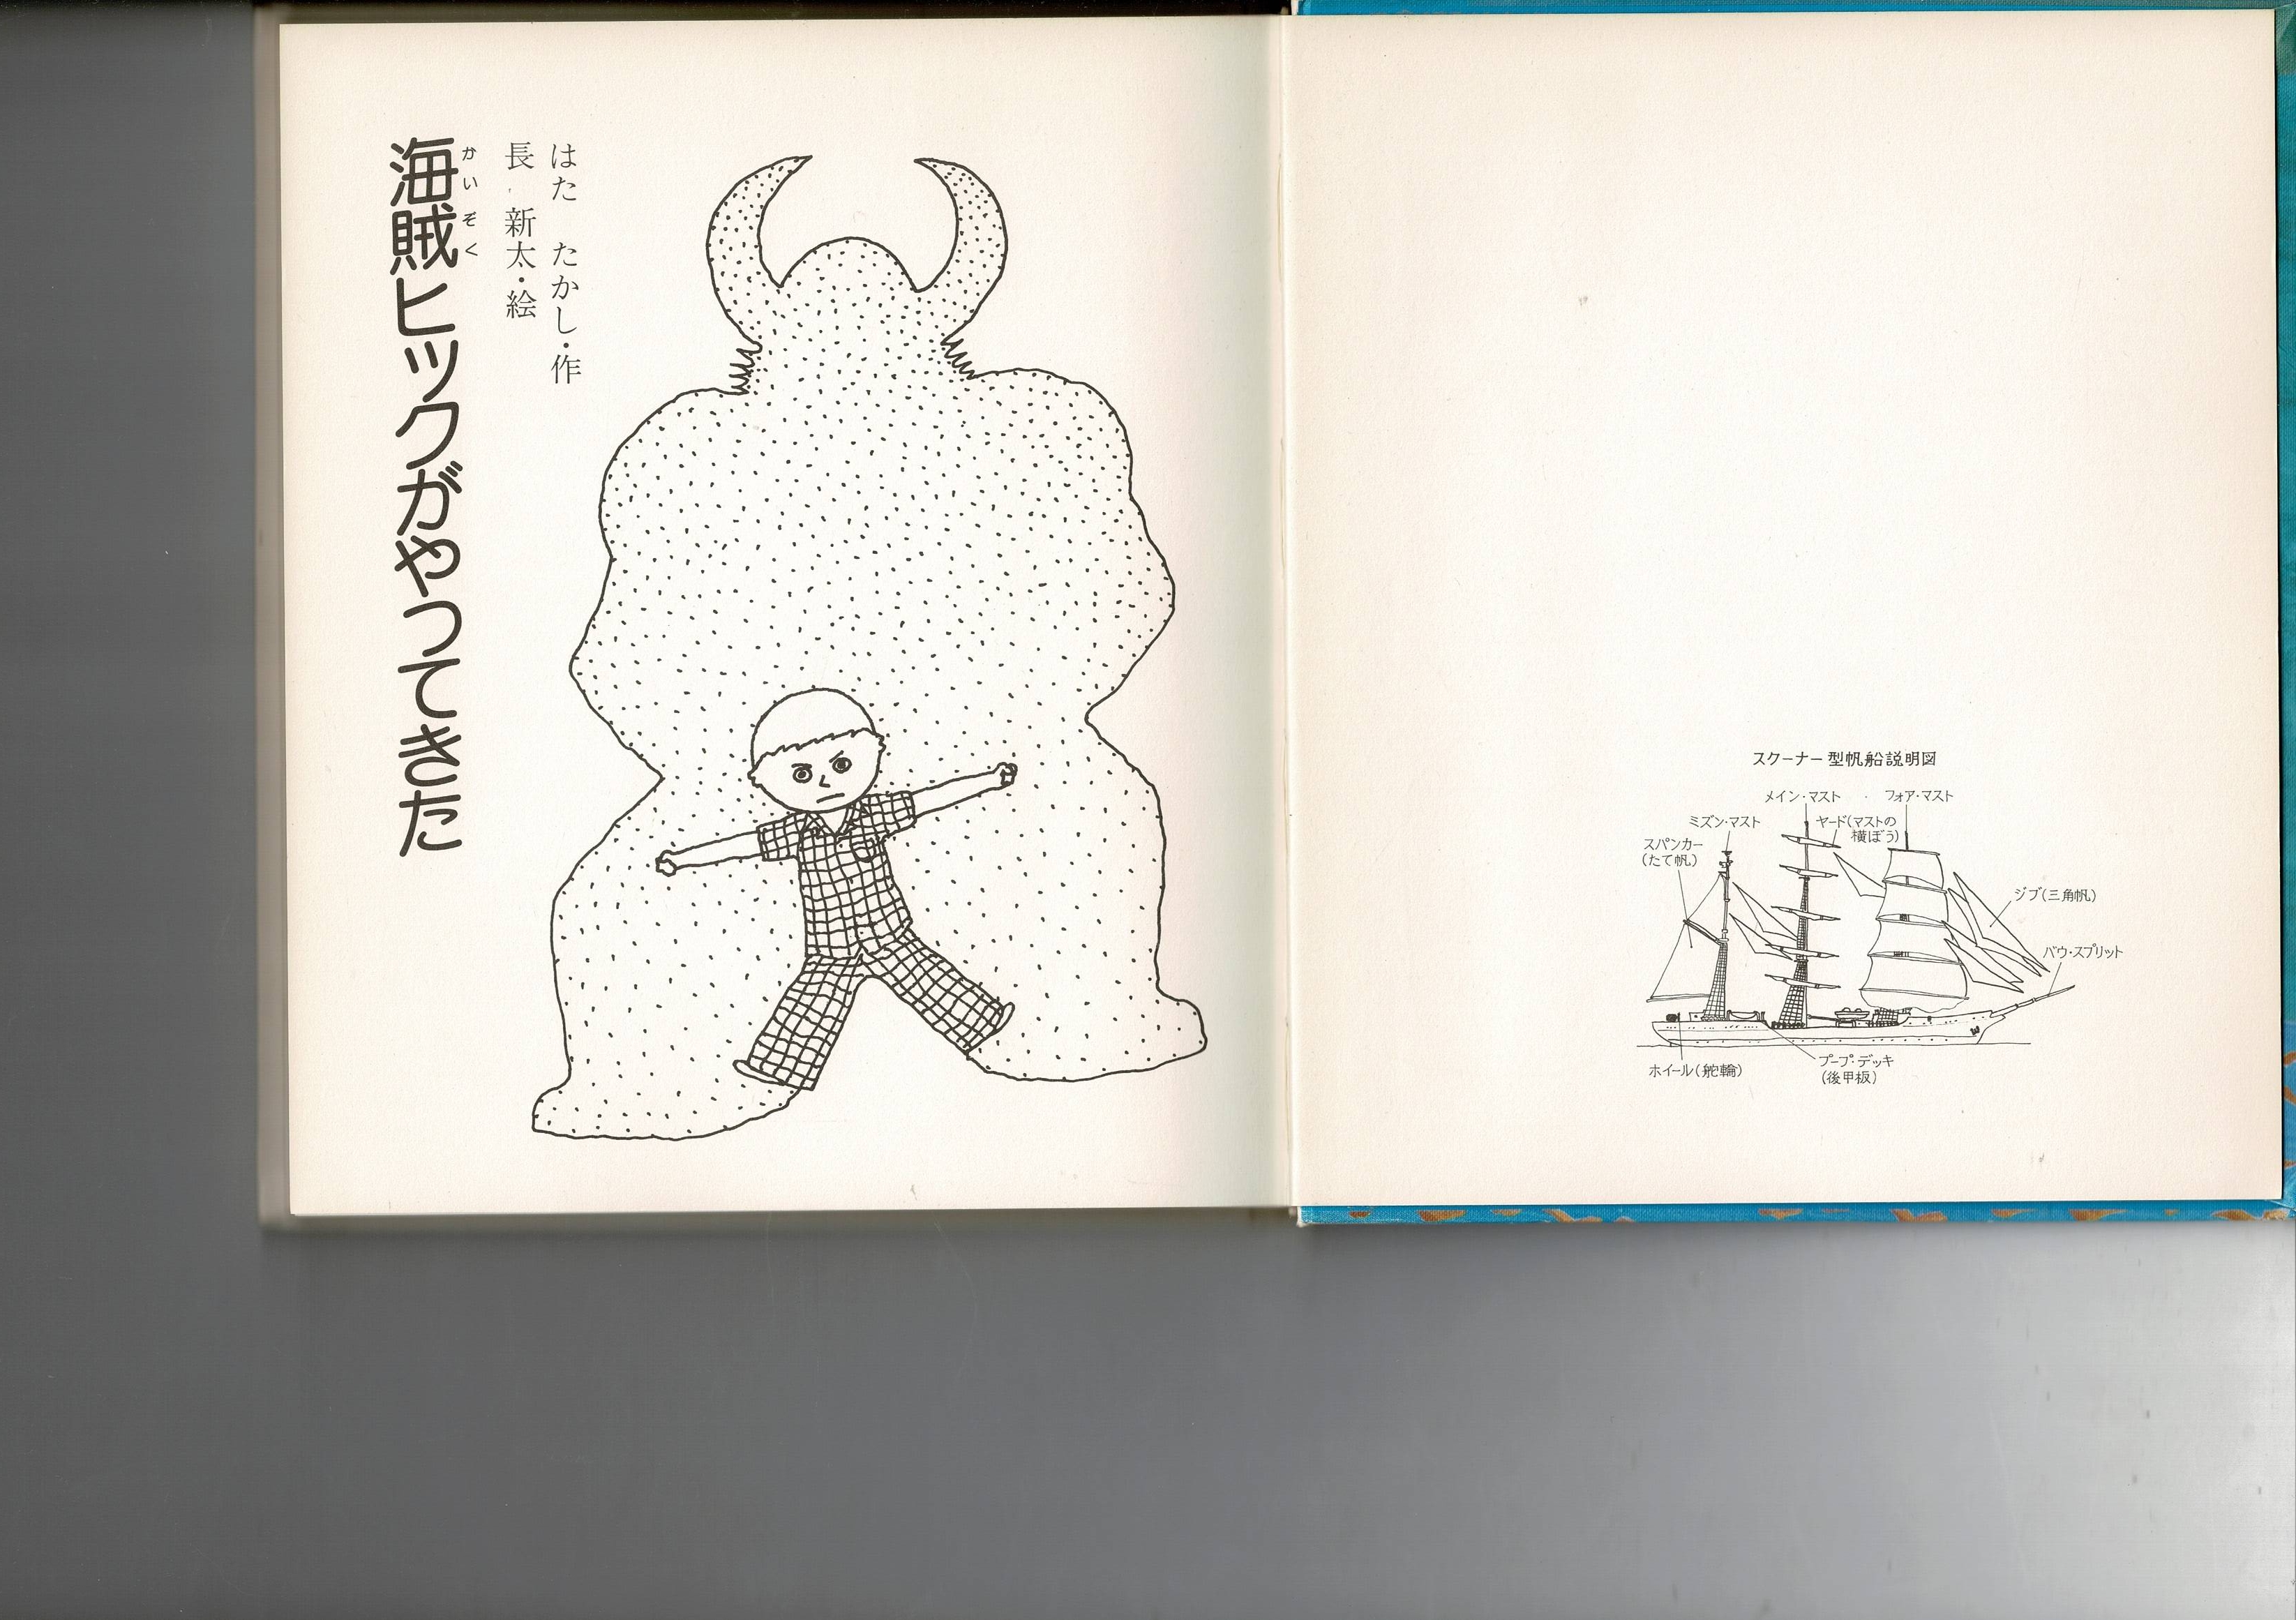 スクーナー型帆船説明図
メイン・マスト
フォア・マスト
ミズン・マスト
ヤード(マストの
横ぼう)
スパンカー
(たて帆)
ジブ(三角帆)
バウ・スプリット
プープ・デッキ
(後甲板)
ホイール(舵輪)
はた たかし・作
長 新太・絵
かいぞく
海賊ヒックがやってきた